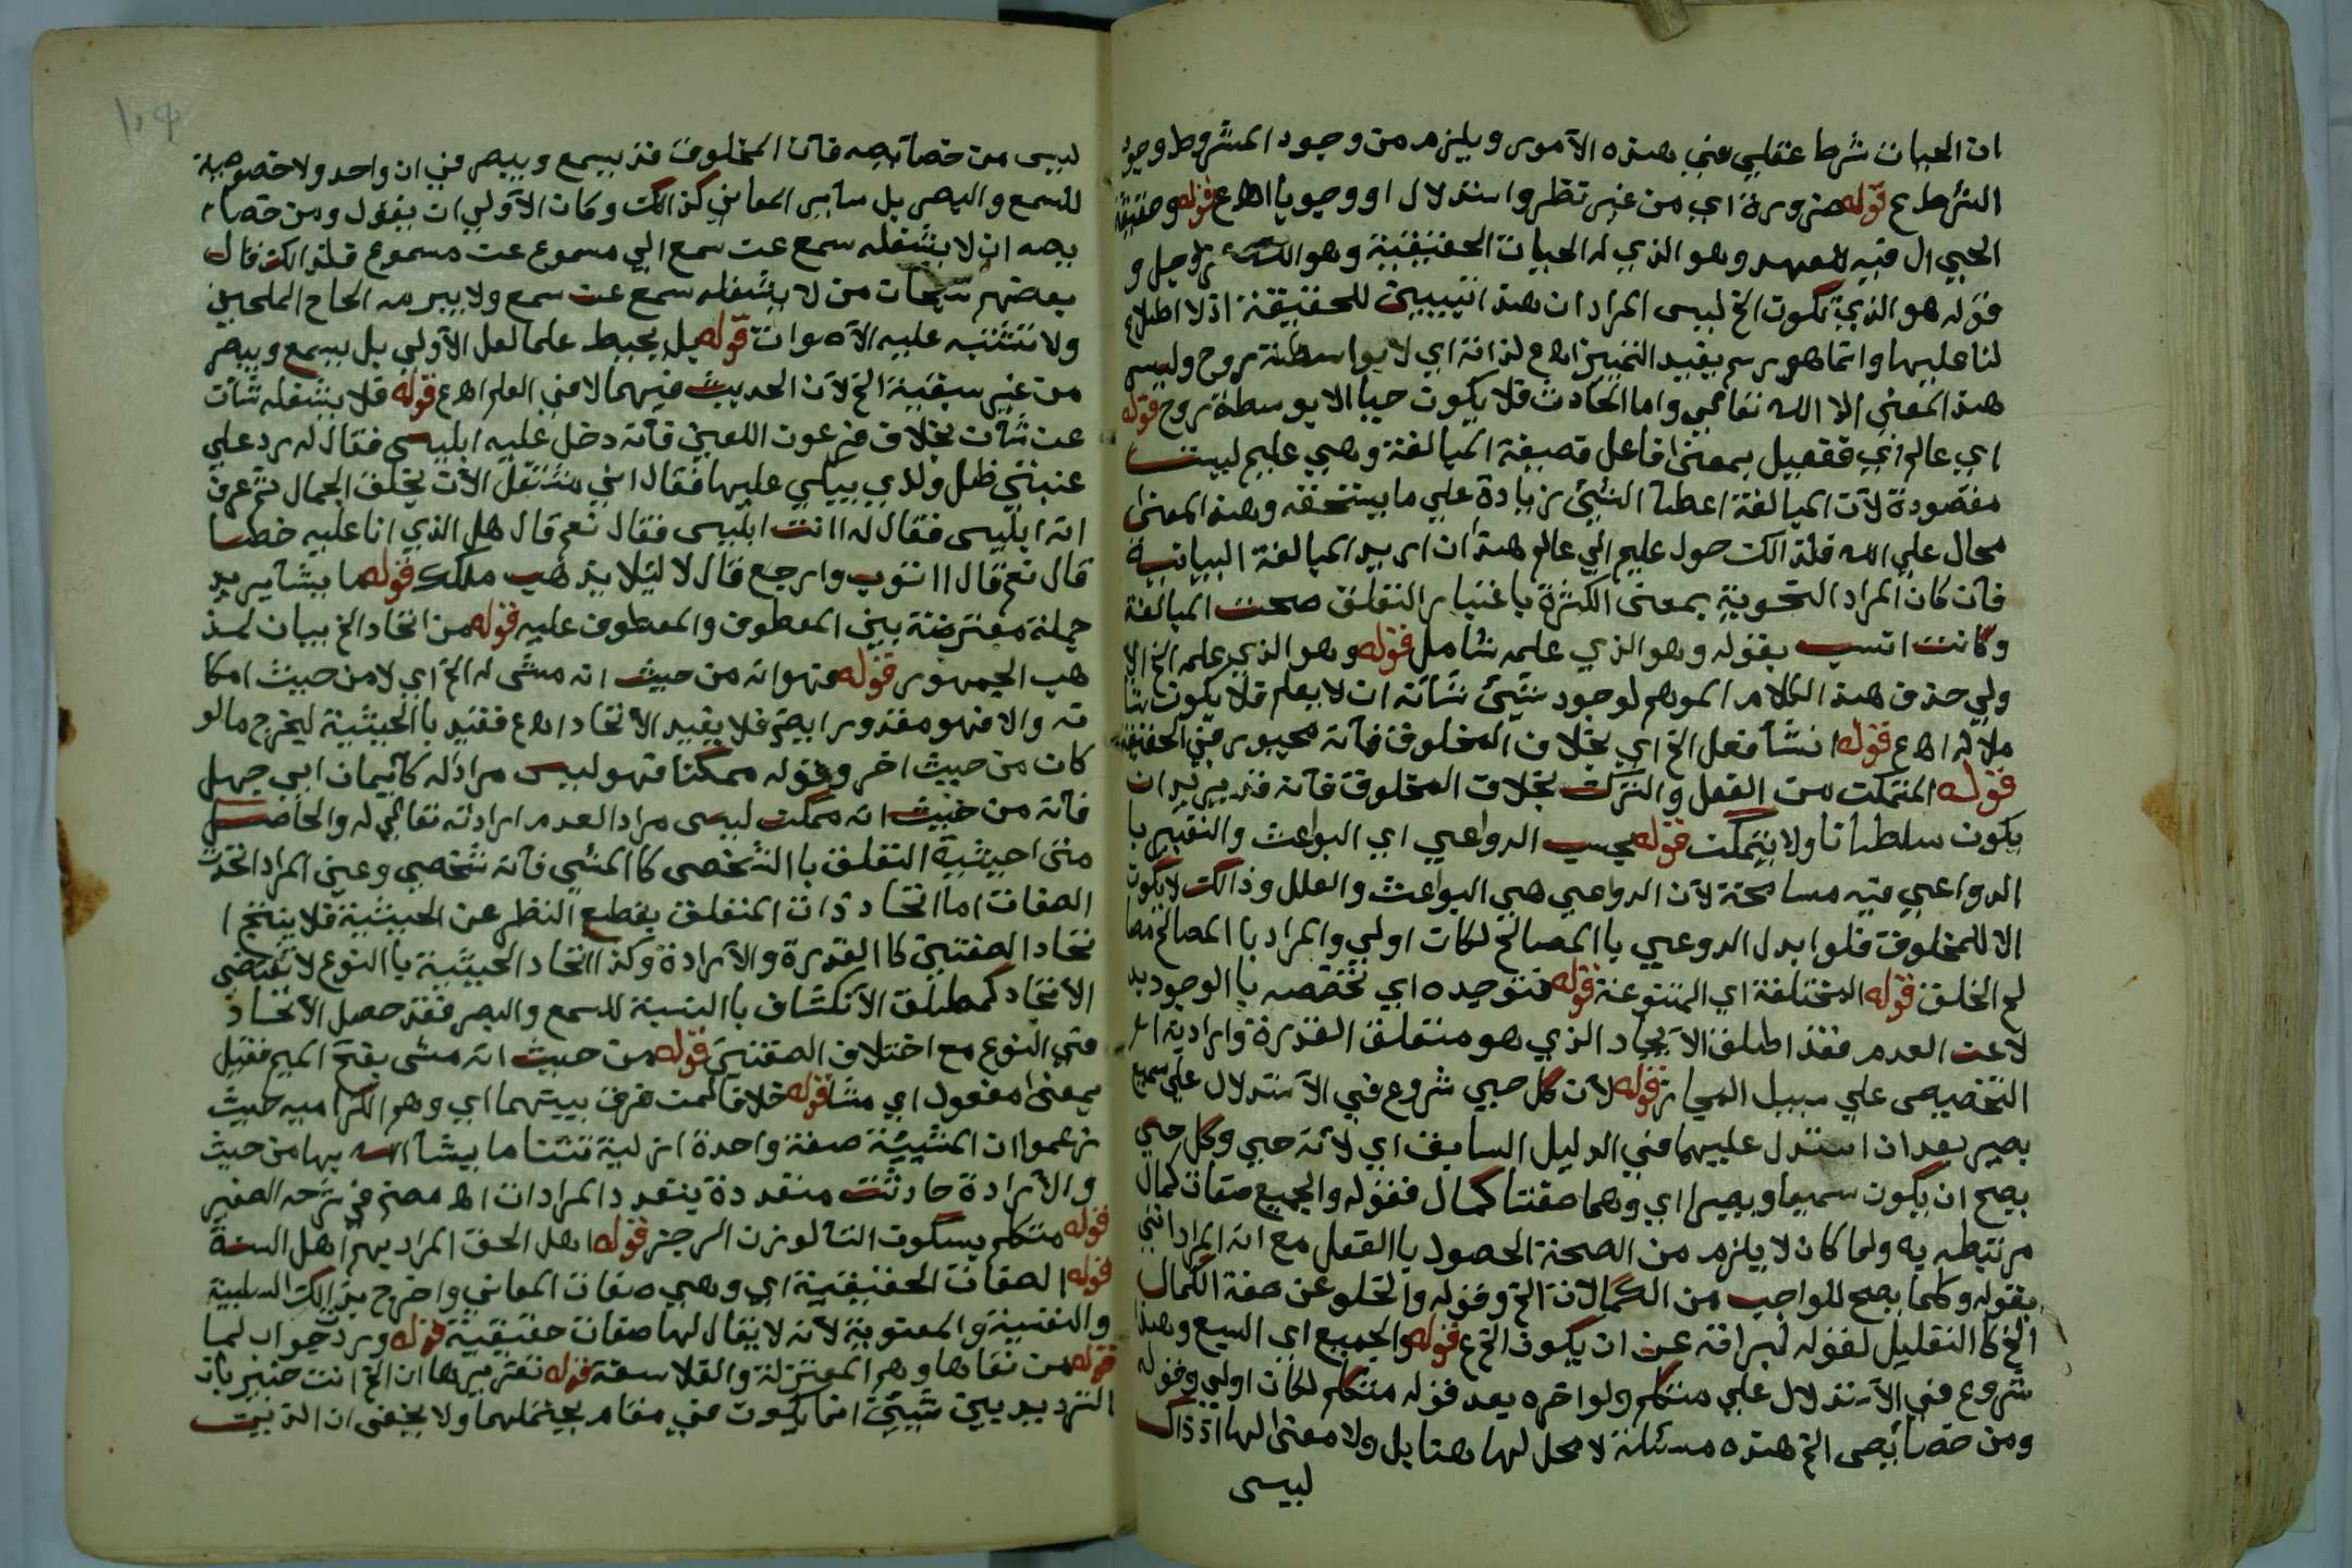 ان الحيات شرط عقلي في هذه الآمور ويلزم من وجود المشروط وجود
الشرط ع قوله ضرورة اي من غير نظر واستدلال او وجوبا اهع قوله وحقيقة
الحي ال فيه للعهد وهو الذي له الحيات الحقيقية وهو الله عز وجل و
قوله هو الذي تكون الخ ليس المراد ان هذا تبيين للحقيقة اذ لا اطلاع
لنا عليها وانما هو رسم يفيد التمييز اهع لذاته اي لا بواسطة روح وليس
هذ المعنى الا الله تعالي واما الحادث فلا يكون حيا الا بوسطة روح قوله
اي عالم اي ففعيل بمعنى فاعل فصيغة المبالغة وهي عليم ليست
مقصودة لآن المبالغة اعطآ الشيئ زيادة علي ما يستحقه وهذ المعنى
محال علي الله فلذالك حول عليم الي عالم هذا ان اريد المبالغة البيانية
فآن كان المراد النحوية بمعنى الكثرة باعتبار التعلق صحت المبالغة
وكانت انسب بقوله وهو الذي علمه شامل قوله وهو الذي علمه الخ الا
ولي حذف هذ الكلام الموهم لوجود شيئ شآنه ان لا يعلم فلا يكون شا
ملا له اهع قوله ان شآ فعل الخ اي بخلاف المخلوق فآنه مجبور في الحقيقة
قوله المتمكن من الفعل والترك بخلاف المخلوق فآنه قد يريد ان
يكون سلطانا ولا يتمكن قوله بحسب الدواعي اي البواعث والتعبير با
الدواعي فيه مسامحة لآن الدواعي هي البواعث والعلل وذالك لا يكون
الا للمخلوق فلو ابدل الدوعي با المصالح لكان اولي والمراد با المصالح مصا
لح الخلق قوله المختلفة اي المتنوعة قوله فتوجيده اي تخصصه با الوجود بد
لا عن العدم فقد اطلق الآيجاد الذي هو متعلق القدرة وارادية اثر
التخصيص علي سبيل المجاز قوله لآن كل حي شروع في الآستدلال علي سميع
بصير بعد ان استدل عليهما في الدليل السابق اي لآنه حي وكل حي
يصح ان يكون سميعا وبصيرا اي وهما صفتا كمال فقوله والجميع صفات كمال
مرتبطه به ولما كان لا يلزم من الصحة الحصول با الفعل مع انه المراد اتي
بقوله وكلما يصح للواجب من الكمالات الخ وقوله والخلو عن صفة الكمال
الخ كا التقليل لقوله لبرافته عن ان يكون الخ ع قوله والجميع اي السبع وهذا
شروع في الآستدلال علي متكلم ولو اخره بعد قوله متكلم لكان اولي وقوله
ومن خصآئص الخ هذه مسئلة لا محل لها هنا بل ولا معنى لها اذ ذاك
ليس
ليس من خصآئصه فآن المخلوق قد يسمع ويبصر في ان واحد ولا خصوصية
للسمع والبصر بل سآير المعاني كذالك وكان الآولي ان يقول ومن خصآ
يصه ان لا يشغله سمع عن سمع الي مسموع عن مسموع قلذالك قال
بعضهم سبحان من لا يشغله سمع عن سمع ولا يبرمه الحاح الملحين
ولا تشتبه عليه الآصوات قوله بل يحيط علما لعل الآولي بل يسمع ويبصر
من غير سبقية الخ لآن الحديث فيهما لا في العلم اهع قوله فلا يشغله شآن
عن شآن بخلاف فرعون اللعين فآنه دخل عليه ابليس فقال له رد علي
عنبتي ظل ولدي يبكي عليها فقال اني منتقل الآن بخلق الجمال ثم عرف
انه ابليس فقال له اانت ابليس فقال نعم قال هل الذي انا عليه خطا
قال نعم قال ااتوب وارجع قال لا ليلا يذهب ملكك قوله ما يشآ يريد
جملة معترضة بين المعطوف والمعطوف عليه قوله من اتحاد الخ بيان لمذ
هب الجمهور قوله فهو انه من حيث انه مشى له الخ اي لا من حيث امكا
نه والا فهو مقدور ايضم فلا يفيد الآتحاد اهع فقيد با الحيثية ليخرج ما لو
كان من حيث اخر وقوله ممكنا فهو ليس مراد له كآيمان ابي جهل
فآنه من حيث انه ممكن ليس مراد العدم ارادته تعالي له والحاصل
متى احيثية التعلق با الشخصى كا المشي فآنه شخصي وعين المراد اتحدت
الصفات اما اتحاد ذات المتعلق بقطع النظر عن الحيثية فلا ينتج ا
تحاد الصفتين كا القدرة والآرادة وكذا اتحاد الحيثية با النوع لا تقتضي
الآتحاد كمطلق الآنكشاف با النسبة للسمع والبصر فقد حصل الآتحاد
في النوع مع اختلاف الصفتين قوله من حيث انه مشى بفتح الميم ففيل
بمعنى مفعول اي مشا قوله خلافا لمن فرق بينهما اي وهو الكرامية حيث
زعموا ان المشيئة صفة واحدة ازلية تتنا ما يشآ الله بها من حيث
والآرادة حادثت متعددة بتعدد المرادات اه مصنح في شرحه الصغير
قوله متكلم بسكون التآ لوزن الرجز قوله اهل الحق المراد بهم اهل السنة
قوله الصفات الحقيقية اي وهي صفات المعاني واخرج بذالك السلبية
والنفسية والمعنوية لآنه لا يقال لها صفات حقيقية قوله ورد جواب لما
قوله من نفاها وهم المعتزلة والفلاسفة قوله تقريرها ان الخ انت خبير بان
الترديد بين شيئين انما يكون في مقام يحتملهما ولا يخفى ان الذ نيت